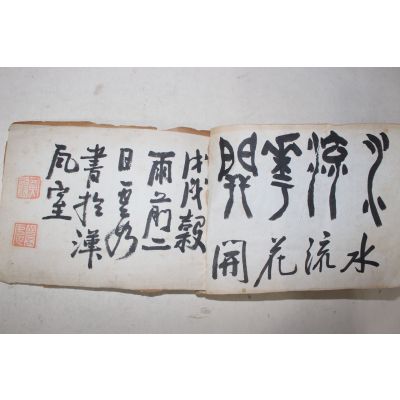 水流花開
水流花開
戊戌穀
雨前二
日
書於漢
瓦室